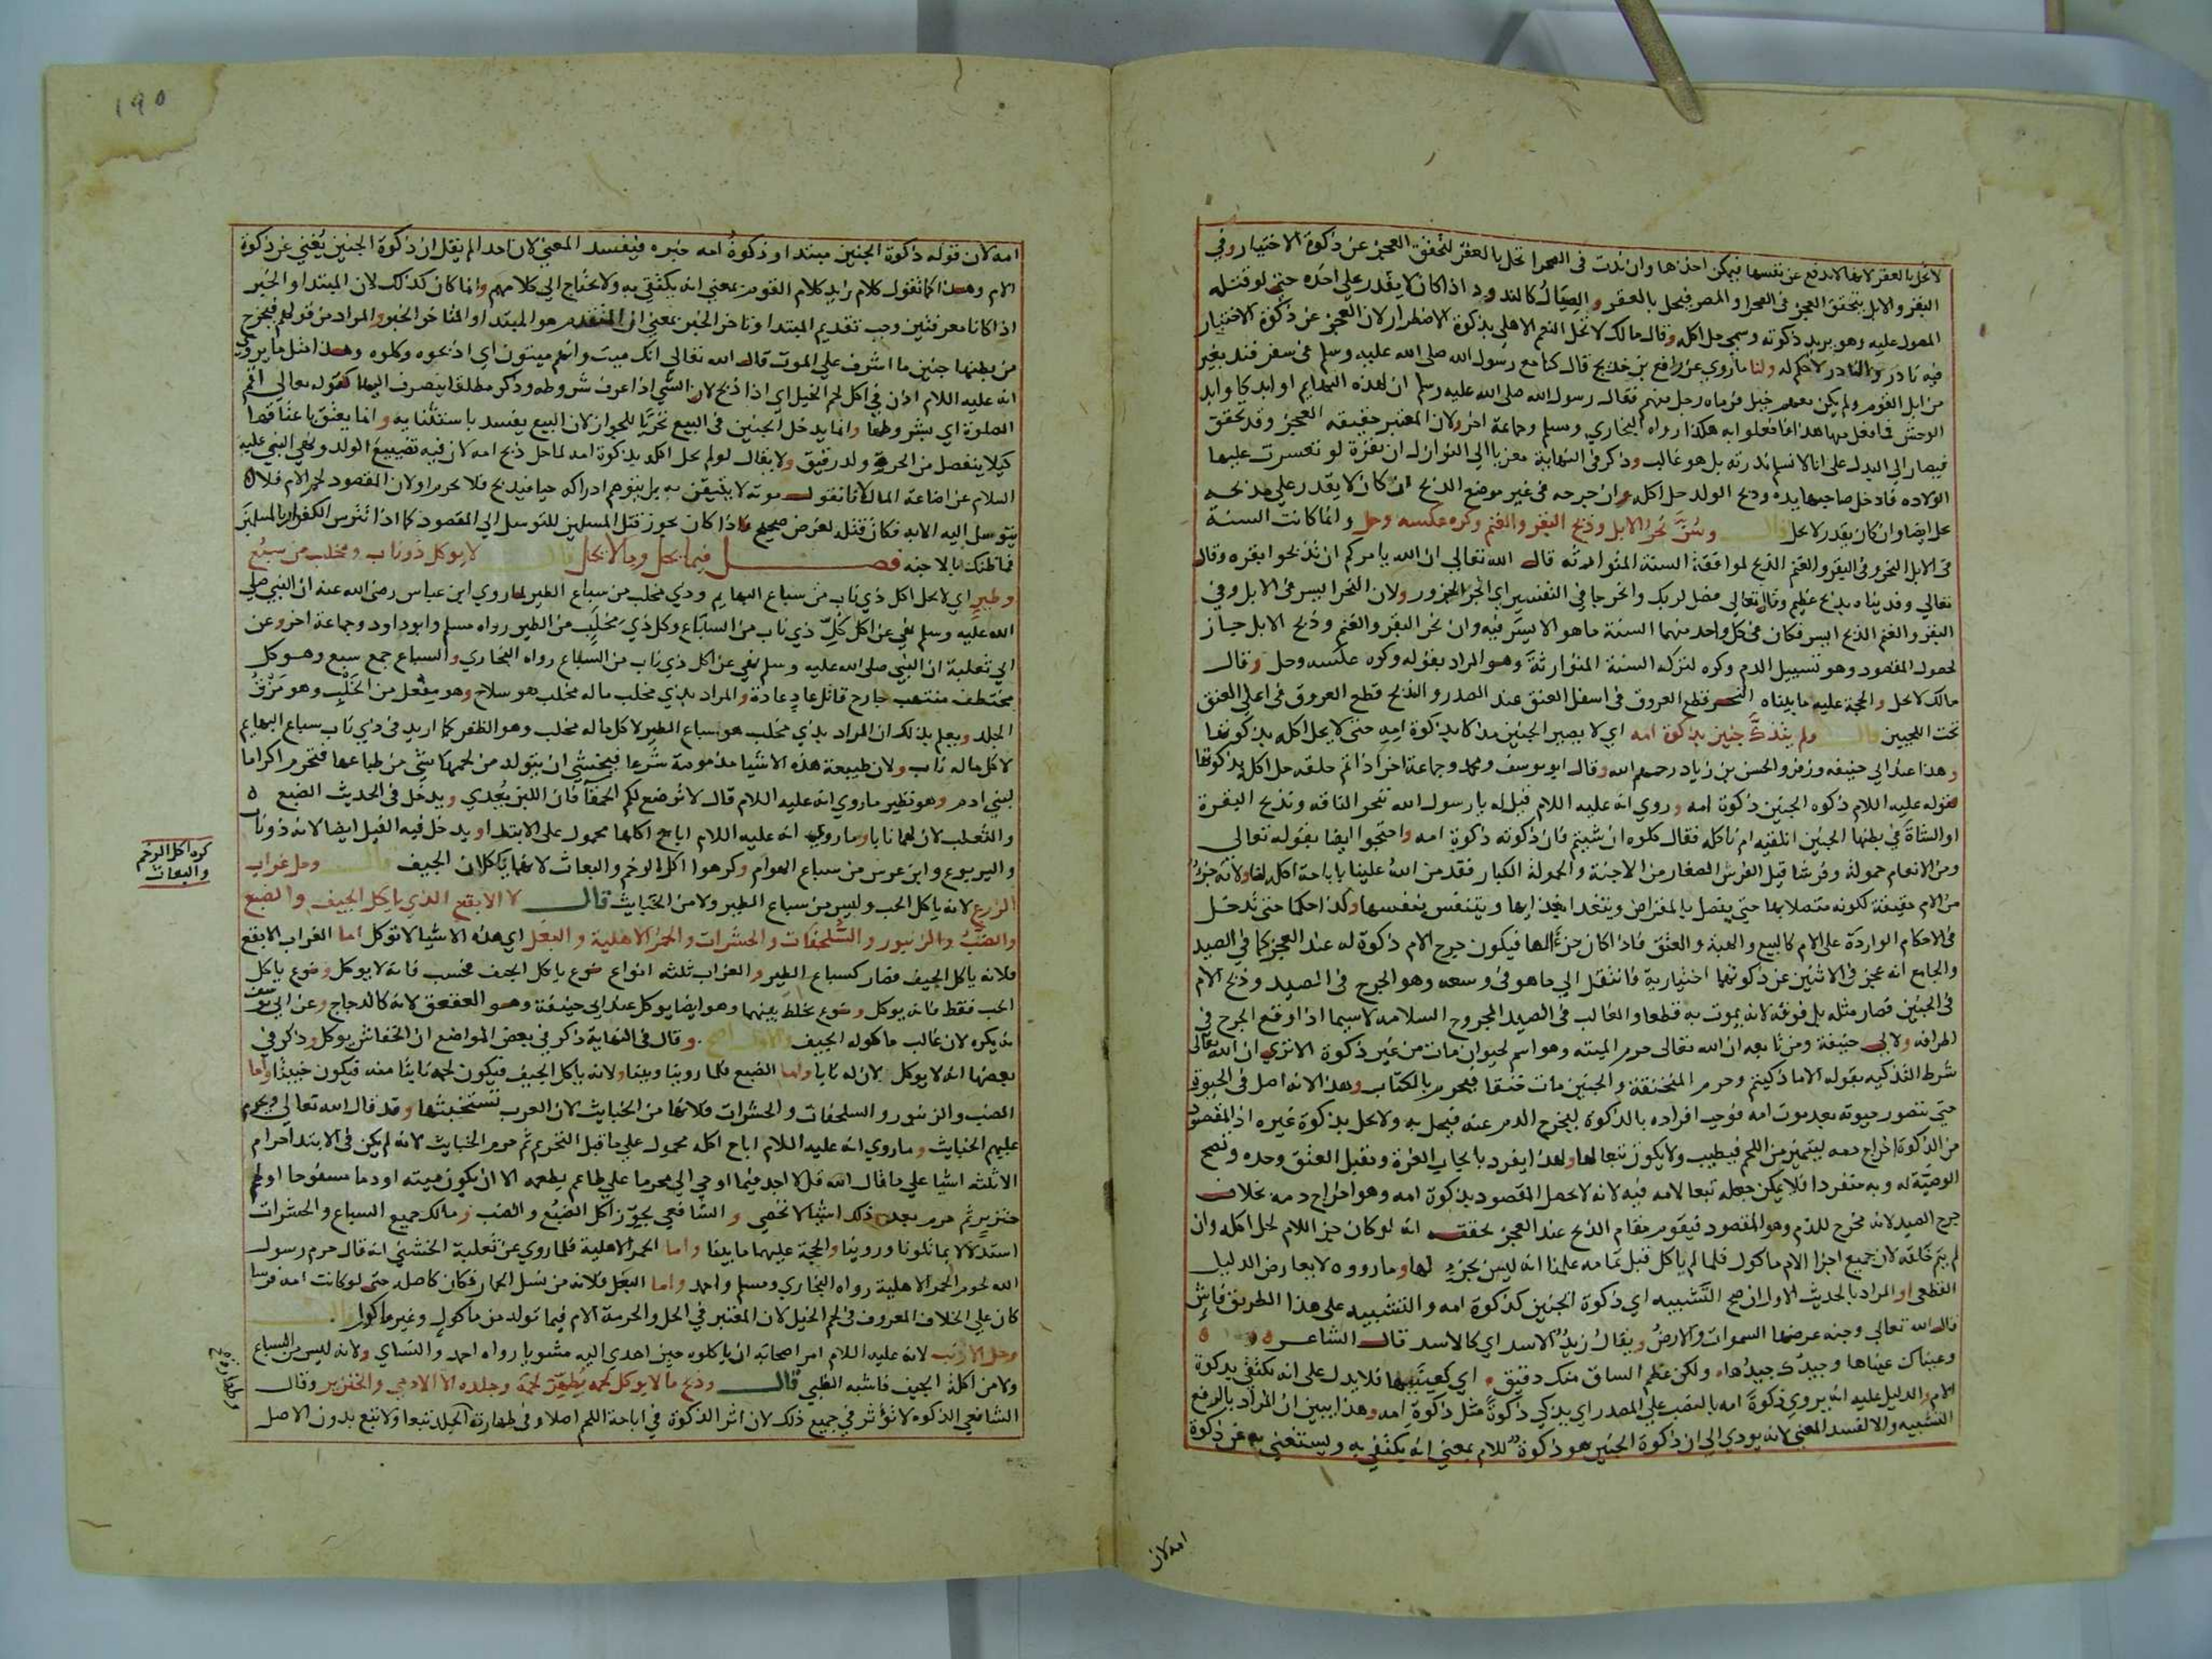 لا تحل بالعقر لانها لا تدفع عن نفسها فيمكن اخذها وان ندت في الصحرا تحل بالعقر لتحقق العجز عن ذكوة الاختيار وفي
البقر والابل يتحقق العجز في الصحرا والمصر فيحل بالعقر والصيال كالندود اذا كان لا يقدر على اخذه حتى لو قتله
المصول عليه وهو يريد ذكوته وسمى حل اكله وقال مالك لا تحل النعم الاهلي بذكوة الاضطرار لان العجز عن ذكوة الاختيار
فيه نادر والنادر لا حكم له ولنا ما روي عن رافع بن خديج قال كنا مع رسول الله صلى الله عليه وسلم في سفر فند بعير
من ابل القوم ولم يكن معهم خيل فرماه رجل منهم فقال رسول الله صلى الله عليه وسلم ان لهذه البهايم اوابد كاوابد
الوحش فما فعل منها هذا فافعلوا به هكذا رواه البخاري ومسلم وجماعة اخر ولان المعتبر حقيقة العجز وقد تحقق
فيصار الى البدل على انا لا نسلم ندرته بل هو غالب وذكر في النهاية معزيا الى النوازل ان بقرة لو تعسرت عليها
الولادة فادخل صاحبها يده وذبح الولد حل اكله وان جرحه في غير موضع الذبح ان كان لا يقدر على مذبحه
حل ايضا وان كان يقدر لا يحل قال وسن نحر الابل وذبح البقر والغنم وكره عكسه وحل وانما كانت السنة
في الابل النحر وفي البقر والغنم الذبح لموافقة السنة المتوارثه قال الله تعالى ان الله يامركم ان تذبحوا بقره وقال
تعالى وفديناه بذبح عظيم وقال تعالى فصل لربك وانحر جا في التفسير اي انحر الجزور ولان النحر ايسر في الابل وفي
البقر والغنم الذبح ايسر فكان في كل واحد منهما السنة ما هو الايسر فيه وان نحر البقر والغنم وذبح الابل جاز
لحصول المقصود وهو تسييل الدم وكره لتركه السنة المتوارثة وهو المراد بقوله وكره عكسه وحل وقال
مالك لا يحل والحجة عليه ما بيناه النحر قطع العروق في اسفل العنق عند الصدر والذبح قطع العروق في اعلى العنق
تحت اللحيين قال ولم يتذك جنين بذكوة امه اي لا يصير الجنين مذكا بذكوة امه حتى لا يحل اكله بذكوتها
وهذا عند ابي حنيفه وزفر والحسن بن زياد رحمهم الله وقال ابو يوسف ومحمد وجماعة اخر اذا تم خلقه حل اكله بذكوتها
لقوله عليه السلام ذكوه الجنين ذكوة امه وروي انه عليه السلام قيل له يا رسول الله ننحر الناقه ونذبح البقرة
او الشاة في بطنها الجنين انلقيه ام ناكله فقال كلوه ان شيتم فان ذكوته ذكوة امه واحتجوا ايضا بقوله تعالى
ومن الانعام حمولة وفرشا قيل الفرش الصغار من الاجنة والحمولة الكبار فقد من الله علينا باباحة اكل لها ولانه جزء
من الام حقيقة لكونه متصلا بها حتى يفصل بالمقراض ويتغدا بغذايها ويتنفس بنفسها وكذا حكما حتى تدخل
في الاحكام الواردة على الام كالبيع والهبة والعتق فاذا كان جزءا لها فيكون جرح الام ذكوة له عند العجز كما في الصيد
والجامع انه عجز في الاثنين عن ذكوتهما اختيارية فانتقل الى ما هو في وسعه وهو الجرح في الصيد وذبح الام
في الجنين فصار مثله بل فوقه لانه يموت به قطعا والغالب في الصيد المجروح السلامه لا سيما اذا وقع الجرح في
اطرافه ولابي حنيفة ومن تابعه ان الله تعالى حرم الميته وهو اسم لحيوان مات من غير ذكوة الا ترى ان الله تعالى
شرط التذكيه بقوله الا ما ذكيتم وحرم المنخنقة والجنين مات خنقا فيحرم بالكتاب وهذا لانه اصل في الحيوة
حتى تتصور حيوته بعد موت امه فوجب افراده بالذكوة ليخرج الدم عنه فيحل به ولا يحل بذكوة غيره اذ المقصود
من الذكوة اخراج دمه ليتميز من اللحم فيطيب ولا يكون تبعا لها ولهذا يفرد بايجاب الغرة وتقبل العتق وحده وتصح
الوصية له وبه منفردا فلا يمكن جعله تبعا لامه فيه لانه لا يحصل المقصود بذكوة امه وهو اخراج دمه بخلاف
جرح الصيد لانه مخرج للدم وهو المقصود فيقوم مقام الذبح عند العجز تحققه انه لو كان حيز اللام لحل اكله وان
لم يتم خلقه لان جميع اجزا الام ماكول فلما لم ياكل قبل تمامه علمنا انه ليس بجزء لها وما رووه لا يعارض الدليل
القطعي او المراد بالحديث الاول ان صح التشبيه اي ذكوة الجنين كذكوة امه والتشبيه على هذا الطريق فاش
قال الله تعالى وجنه عرضها السموات والارض ويقال زيد الاسد اي كالاسد قال الشاعر
وعيناك عيناها وجيدك جيدها ولكن عظم الساق منك دقيق اي كعينيها فلا يدل على انه تكتفي بذكوة
الام والدليل عليه انه يروى ذكوة امه بالنصب على المصدر اي يذكي ذكوة مثل ذكوة امه وهذا يبين ان المراد بالرفع
التشبيه والا لفسد المعنى لانه يودي الى ان ذكوة الجنين هو ذكوة للام بمعنى انه يكتفي به ويستغني به عن ذكوة
امه لان
١٩٥
امه لان قوله ذكوة الجنين مبتدا وذكوة امه خبره فيفسد المعنى لان احدا لم يقل ان ذكوة الجنين يغني عن ذكوة
الام وهذا كما تقول كلام زيد كلام القوم بمعنى انه يكتفي به ولا يحتاج الى كلامهم وانما كان كذلك لان المبتدا والخبر
اذا كانا معرفتين وجب تقديم المبتدا وتاخر الخبر بمعنى ان المتقدم هو المبتدا والمتاخر الخبر والمراد من قولهم فيخرج
من بطنها جنين ما اشرف على الموت قال الله تعالى انك ميت وانهم ميتون اي اذبحوه وكلوه وهذا مثل ما يروى
انه عليه السلام اذن في اكل لحم الخيل اي اذا ذبح لان الشي اذا عرف شروطه وذكر مطلقا ينصرف اليها كقوله تعالى اقم
الصلوة اي بشروطها وانما يدخل الجنين في البيع تحريا للجواز لان البيع يفسد باستثنايه وانما يعتق باعتاقها
كيلا ينفصل من الحرة ولد رقيق ولا يقال لو لم يحل اكله بذكوة امه لما حل ذبح امه لان فيه تضييع الولد ونهى النبي عليه
السلام عن اضاعة المال لانا نقول موته لا يتيقن به بل يتوهم ادراكه حيا فيذبح فلا يحرم ولان المقصود لحم الام فلا
يتوصل اليه الا به فكان قتله لغرض صحيح فاذا كان يجوز قتل المسلمين للتوسل الى المقصود كما اذا تترس الكفار بالمسلمين
فما ظنك بالاجنه فصل فيما يحل وما لا يحل قال لا يوكل ذو ناب ومخلب من سبع
وطير اي لا يحل اكل ذي ناب من سباع البهايم وذي مخلب من سباع الطير لما روى ابن عباس رضي الله عنه ان النبي صلى
الله عليه وسلم نهى عن اكل كل ذي ناب من السباع وكل ذي مخلب من الطير رواه مسلم وابو داود وجماعة اخر وعن
ابي ثعلبة ان النبي صلى الله عليه وسلم نهى عن اكل ذي ناب من السباع رواه البخاري والسباع جمع سبع وهو كل
مختطف منتهب جارح قاتل عاد عادة والمراد بذي مخلب ما له مخلب هو سلاح وهو مفعل من الخلب وهو مزق
الجلد ويعلم بذلك ان المراد بذي مخلب هو سباع الطير لا كل ما له مخلب وهو الظفر كما اريد في ذي ناب سباع البهايم
لا كل ما له ناب ولان طبيعة هذه الاشيا مذمومة شرعا فيخشى ان يتولد من لحمها شي من طباعها فتحرم اكراما
لبني ادم وهو نظير ما روي انه عليه السلام قال لا ترضع لكم الحمقا فان اللبن يعدي ويدخل في الحديث الضبع
والثعلب لان لهما نابا وما روي انه عليه السلام اباح اكلها محمول على الابتدا ويدخل فيه الفيل ايضا لانه ذو ناب
واليربوع وابن عرس من سباع الهوام وكرهوا اكل الرخم والبغاث لانهما ياكلان الجيف قال وحل غراب
الزرع لانه ياكل الحب وليس من سباع الطير ولا من الخبايث قال لا الابقع الذي ياكل الجيف والضبع
والضب والزنبور والسلحفات والحشرات والحمر الاهلية والبغل اي هذه الاشيا لا توكل اما الغراب الابقع
فلانه ياكل الجيف فصار كسباع الطير والغراب ثلثه انواع نوع ياكل الجيف فحسب فانه لا يوكل ونوع ياكل
الحب فقط فانه يوكل ونوع يخلط بينهما وهو ايضا يوكل عند ابي حنيفة وهو العقعق لانه كالدجاج وعن ابي يوسف
انه يكره لان غالب ماكوله الجيف والاول اصح وقال في النهاية ذكر في بعض المواضع ان الخفاش يوكل وذكر في
بعضها انه لا يوكل لان له نابا واما الضبع فلما روينا وبينا ولانه ياكل الجيف فيكون لحمه نابتا منه فيكون خبيثا واما
الضب والزنبور والسلحفات والحشرات فلانها من الخبايث لان العرب تستخبثها وقد قال الله تعالى ويحرم
عليهم الخبايث وما روي انه عليه السلام اباح اكله محمول على ما قبل التحريم ثم حرم الخبايث لانه لم يكن في الابتدا حرام
الا ثلثه اشيا على ما قال الله قل لا اجد فيما اوحي الي محرما على طاعم يطعمه الا ان يكون ميته او دما مسفوحا او لحم
خنزير ثم حرم بعد ذلك اشيا لا تحصى والشافعي يجوز اكل الضبع والضب ومالك جميع السباع والحشرات
استدلالا بما تلونا وروينا والحجة عليهما ما بينا واما الحمر الاهلية فلما روي عن ثعلبة الخشني انه قال حرم رسول
الله لحوم الحمر الاهلية رواه البخاري ومسلم واحمد واما البغل فلانه من نسل الحمار فكان كاصله حتى لو كانت امه فرسا
كان على الخلاف المعروف في لحم الخيل لان المعتبر في الحل والحرمة الام فيما تولد من ماكول وغير ماكول قال
وحل الارنب لانه عليه السلام امر اصحابه ان ياكلوه حين اهدي اليه مشويا رواه احمد والنساي ولانه ليس من السباع
ولا من اكلة الجيف فاشبه الظبي قال وذبح ما لا يوكل لحمه يطهر لحمه وجلده الا الادمي والخنزير وقال
الشافعي الذكوه لا تؤثر في جميع ذلك لان اثر الذكوة في اباحة اللحم اصلا وفي طهارة الجلد تبعا ولا تبع بدون الاصل
كره اكل الرخم
والبغاث